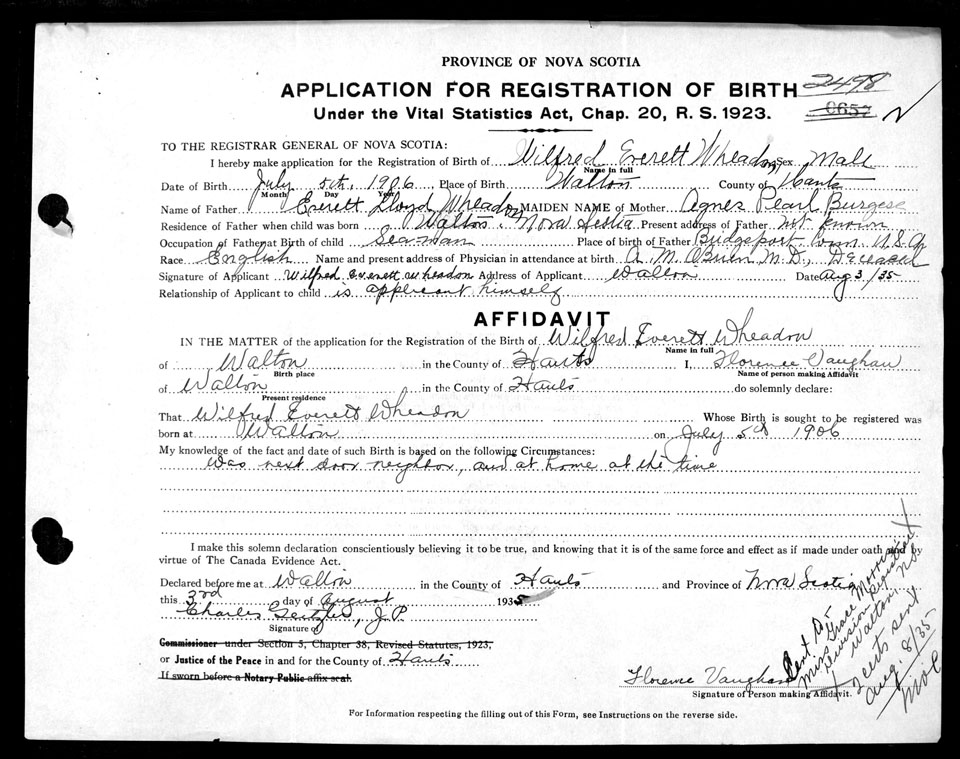 PROVINCE OF NOVA SCOTIA
APPLICATION FOR REGISTRATION OF BIRTH 2498
Under the Vital Statistics Act, Chap. 20, R. S. 1923. 0657
TO THE REGISTRAR GENERAL OF NOVA SCOTIA:
I hereby make application for the Registration of Birth of Wilfred Everett Wheadon Sex Male
Name in full
Date of Birth July 5th, 1906 Place of Birth Walton County of Hants
Month Day Year
Name of Father Everett Lloyd Wheadon MAIDEN NAME of Mother Agnes Pearl Burgess
Residence of Father when child was born Walton, Nova Scotia Present address of Father not known
Occupation of Father at Birth of child Sea-man Place of birth of Father Bridgeport Conn. U.S.A
Race English Name and present address of Physician in attendance at birth A. M. OBrien M.D., Deceased
Signature of Applicant Wilfred Everett Wheadon Address of Applicant Walton Date Aug 3/35
Relationship of Applicant to child is applicant himself
AFFIDAVIT
IN THE MATTER of the application for the Registration of the Birth of Wilfred Everett Wheadon
Name in full
of Walton in the County of Hants I, Florence Vaughan
Birth place Name of person making Affidavit
of Walton in the County of Hants do solemnly declare:
Present residence
That Wilfred Everett Wheadon Whose Birth is sought to be registered was
born at Walton on July 5th 1906
My knowledge of the fact and date of such Birth is based on the following Circumstances:
Was next door neighbor, and at home at the time
I make this solemn declaration conscientiously believing it to be true, and knowing that it is of the same force and effect as if made under oath and by
virtue of The Canada Evidence Act.
Declared before me at Walton in the County of Hants and Province of Nova Scotia
this 3rd day of August 1935
Charles J.P.
Signature of
Commissioner under Section 5, Chapter 38, Revised Statutes, 1923,
or Justice of the Peace in and for the County of Hants
If sworn before a Notary Public affix seal.
Florence Vaughan
Signature of Person making Affidavit.
Sent to
Miss Grace
Division Registrar
Walton, N.S.
2 certs sent
Aug. 8/35
For Information respecting the filling out of this Form, see Instructions on the reverse side.